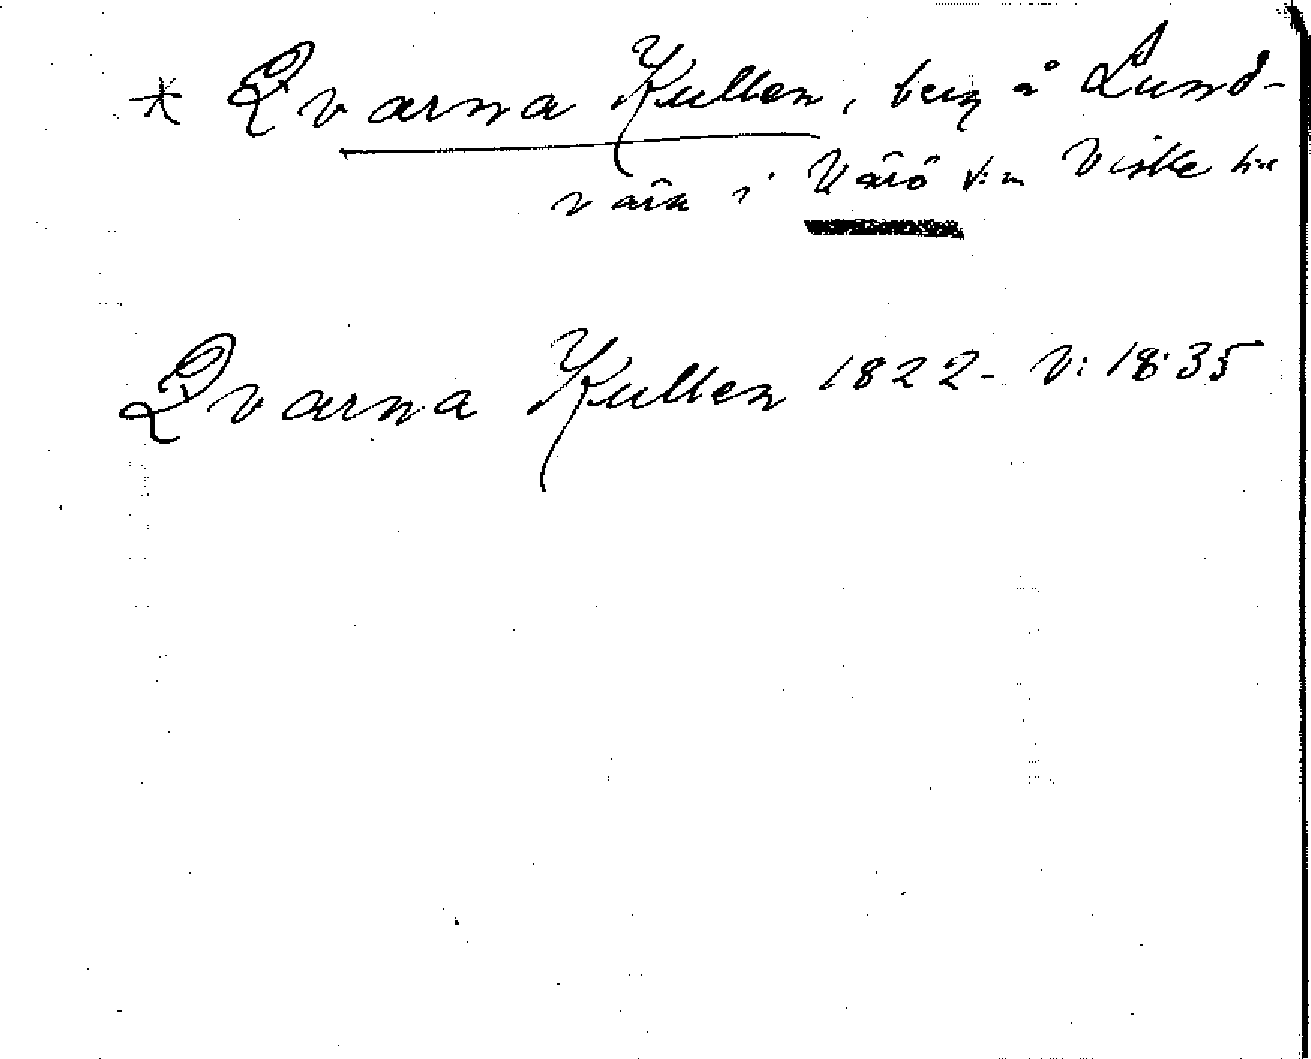 * Qvarna Kullen, berg å Lund-
vära i Värö s:n Viske h:d
Qvarna Kullen 1822- V: 18:35